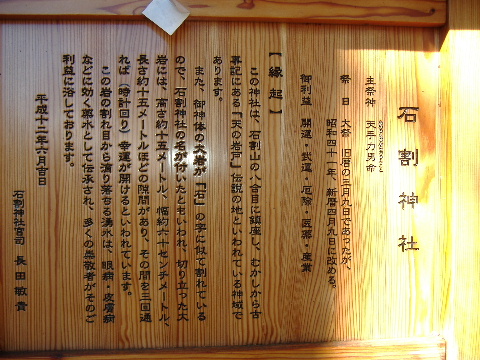 石割神社
主祭神 天手力男命
祭日 大祭 旧暦の三月九日であったが、
昭和四十一年、新暦四月九日に改める。
御利益 開運・武運・厄除・医薬・産業
【縁起】
この神社は、石割山の八合目に鎮座し、むかしから古
事記にある「天の岩戸」伝説の地といわれている神域で
あります。
また、御神体の大岩が「石」の字に似て割れている
ので、石割神社の名が付いたともいわれ、切り立った大
岩には、高さ約十五メートル、幅約六十センチメートル、
長さ約十五メートルほどの隙間があり、その間を三回通
れば(時計回り)幸運が開けるといわれています。
この岩の割れ目から滴り落ちる湧水は、眼病・皮膚病
などに効く薬水として伝承され、多くの崇敬者がそのご
利益に浴しております。
平成十二年六月吉日
石割神社宮司 長田敏貴